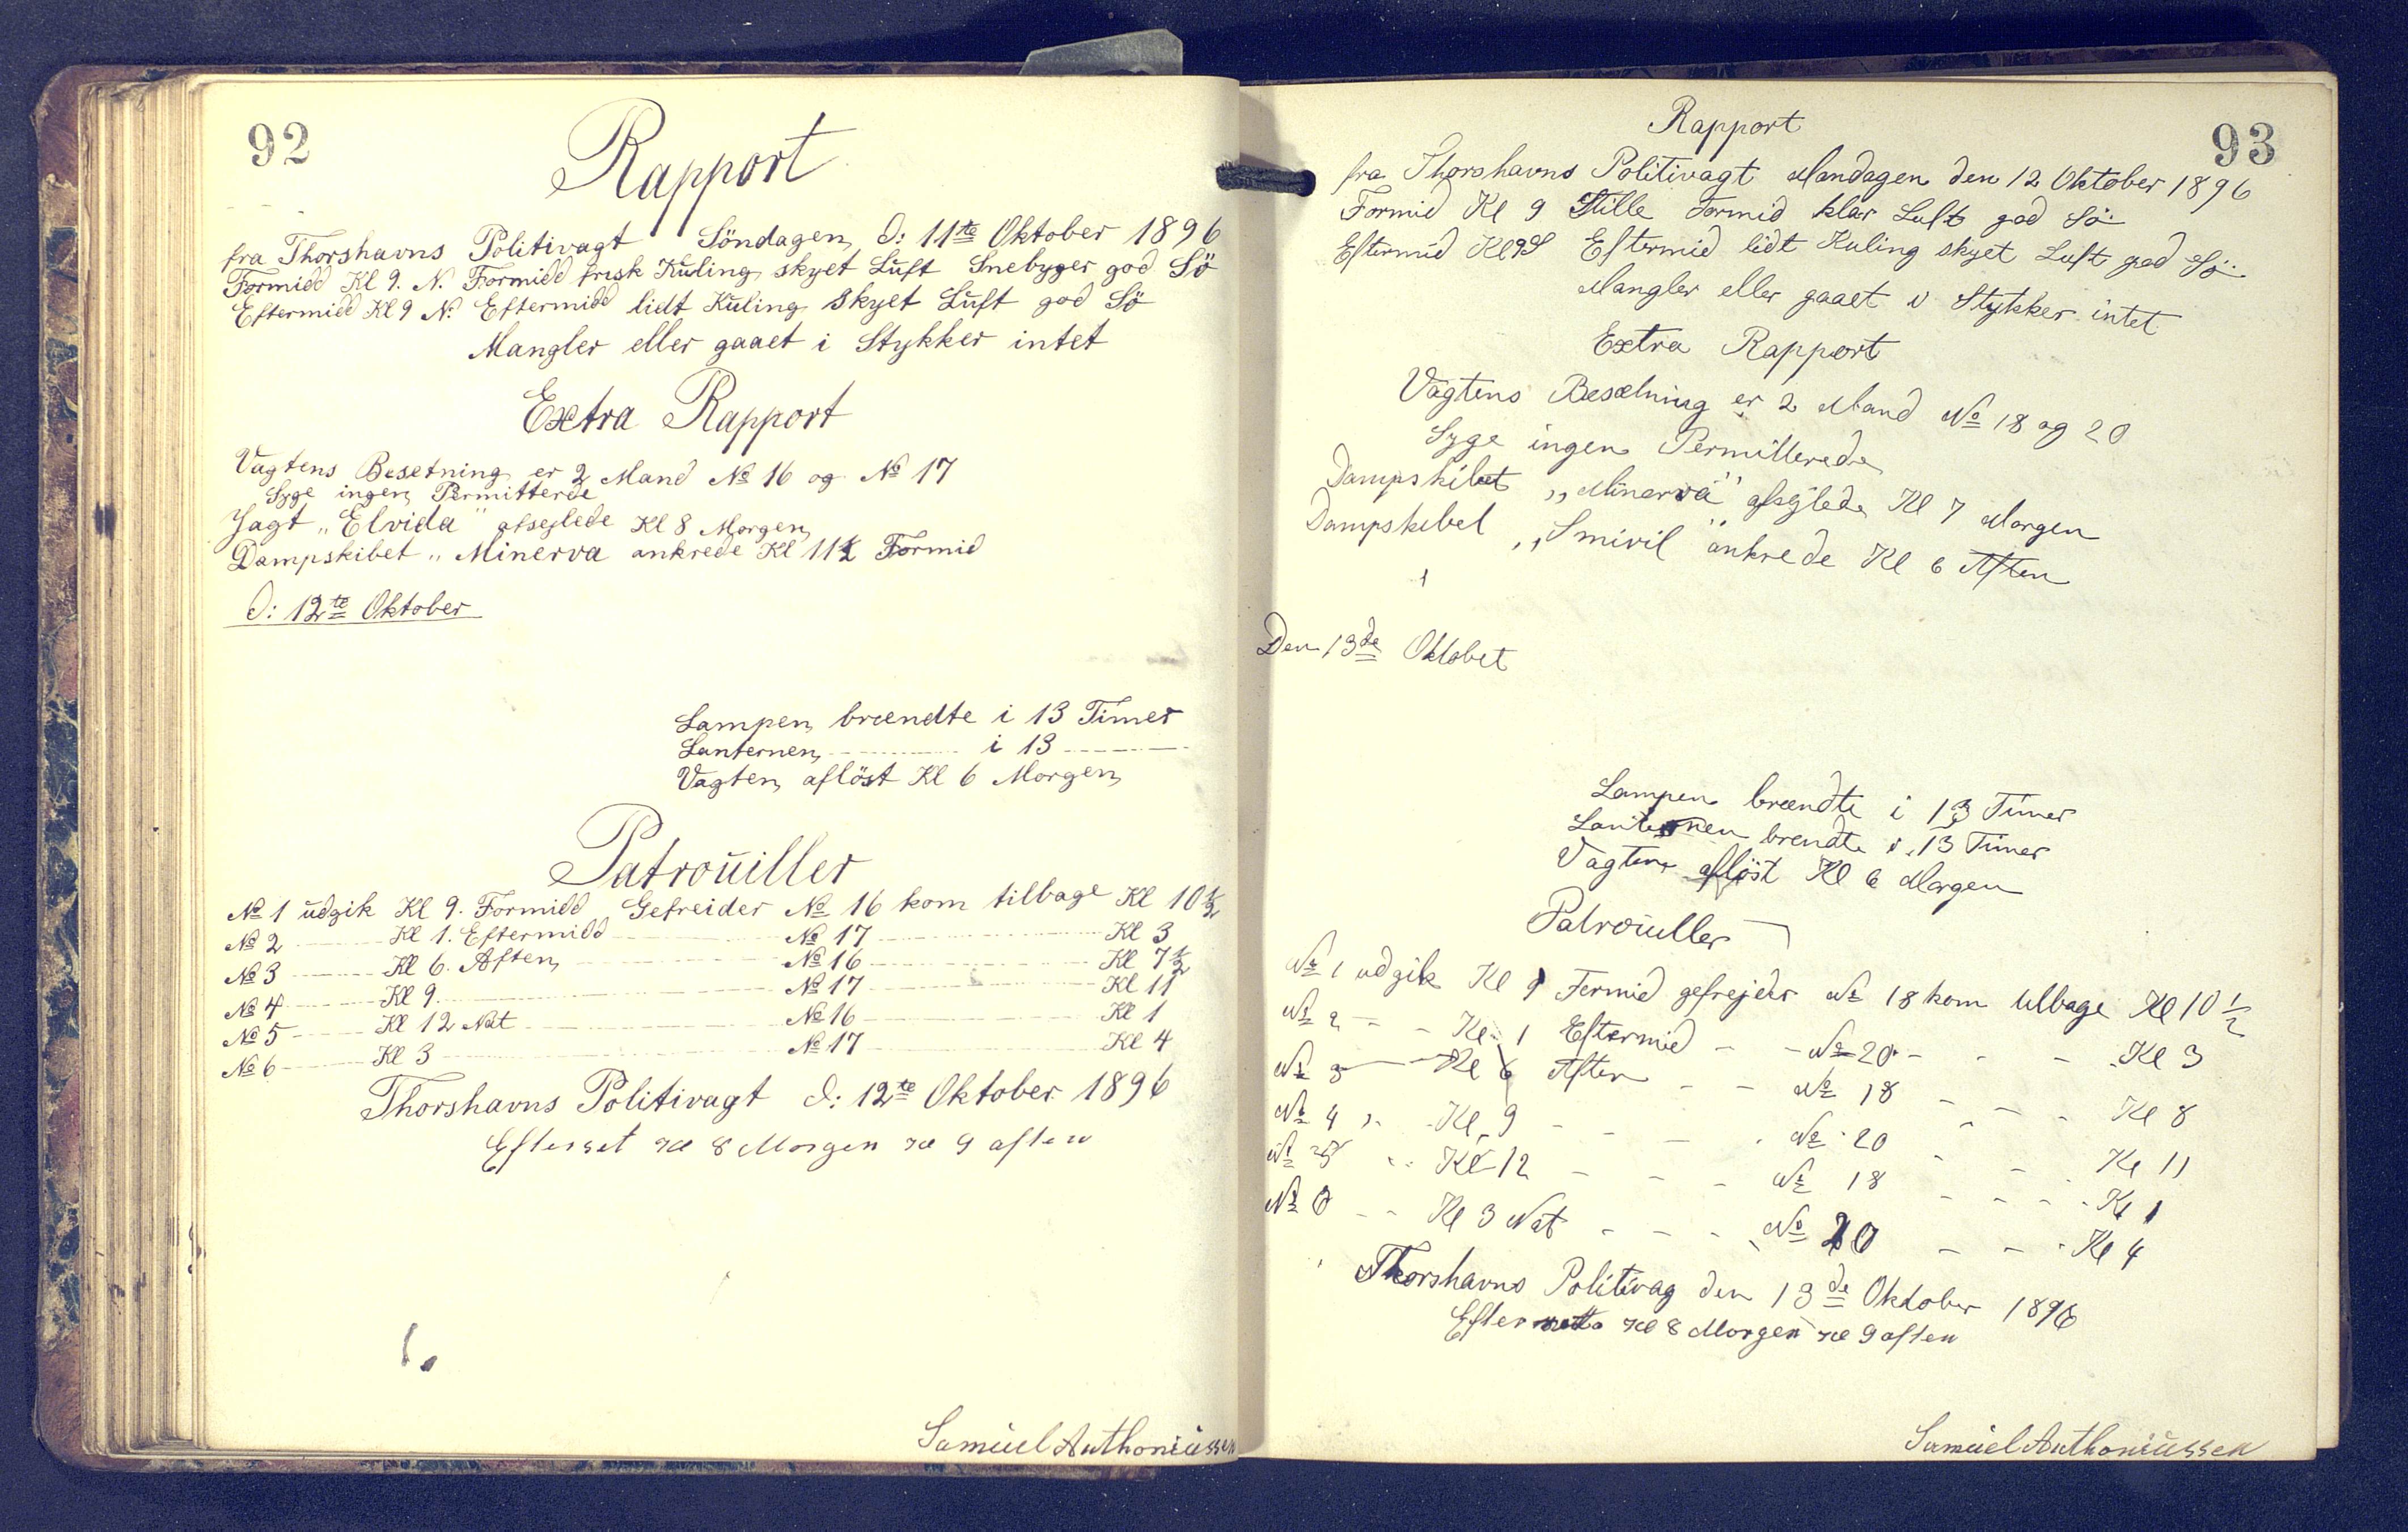 92
Rapport
fra Thorshavns Politivagt Söndagen, d: 11te Oktober 1896
Formidd Kl 9. N. Formidd frisk Kuling skyet Luft Snebyger god Sö
Eftermidd Kl 9 N: Eftermidd lidt Kuling Skyet Luft god Sö
Mangler eller gaaet i Stykker intet
Extra Rapport
Vagtens Besetning er 2 Mand No 16 og No 17
Syge ingen Permitterde
Jagt „Elvida" afsejlede Kl 8 Morgen
Dampskibet „Minerva ankrede Kl 11½ Formid
d: 12te Oktober
Lampen brændte i 13 Timer
Lanternen i 13
Vagten aflöst Kl 6 Morgen
Patrouiller
No 1 udgik Kl 9. Formidd Gefreider No 16 kom tilbage Kl 10½
No 2 Kl 1. Eftermidd No 17 Kl 3
No 3 Kl 6. Aften No 16 Kl 7½
No 4 Kl 9. No 17 Kl 11
No 5 Kl 12 Nat No 16 Kl 1
No 6 Kl 3 No 17 Kl 4
Thorshavns Politivagt d: 12te Oktober 1896
Efterset Kl 8 Morgen Kl 9 aften
Samuel Anthoniussen
93
Rapport
fra Thorshavns Politivagt Mandagen den 12 Oktober 1896
Formid Kl 9 Stille Formid klar Luft god Sö
Eftermid Kl 9 S Eftermid lidt Kuling skyet Luft god Sö
Mangler eller gaaet i Stykker intet
Extra Rapport
Vagtens Besætning er 2 Mand No 18 og 20
Syge ingen Permitterede
Dampskibet „Minerva" afsejlede Kl 7 Morgen
Dampskibet „Smiril" ankrede Kl 6 Aften
Den 13de Oktobet
Lampen brændte i 13 Timer
Lanternen brendte i 13 Timer
Vagten aflöst Kl 6 Morgen
Patrouller
No 1 udgik Kl 9 Formid gefrejder No 18 kom tilbage Kl 10½
No 2 Kl 1 Eftermid No 20 Kl 3
No 3 Kl 6 Aften No 18 Kl 8
No 4 Kl 9 No 20 Kl 11
No 5 Kl 12 No 18 Kl 1
No 6 Kl 3 Nat No 20 Kl 4
Thorshavns Politivag den 13de Oktober 1896
Kl 8 Morgen Kl 9 aften
Samuel Anthoniussen